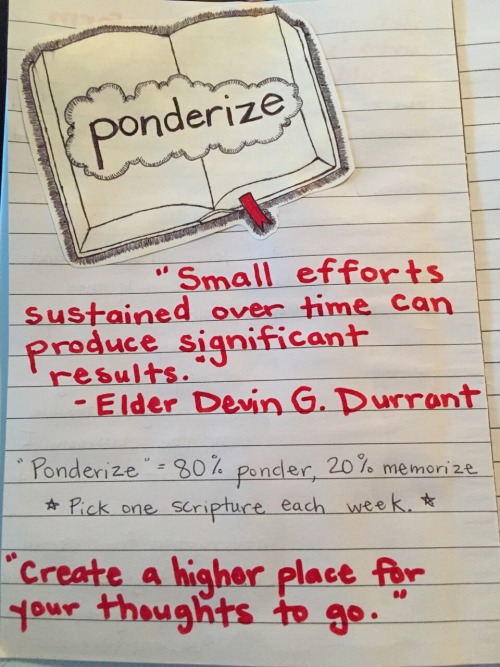 ponderize
"Small efforts
sustained over time can
produce significant
results."
- Elder Devin G. Durrant
"Ponderize" = 80% ponder, 20% memorize
☆ Pick one scripture each week. ☆
"Create a higher place for
your thoughts to go."